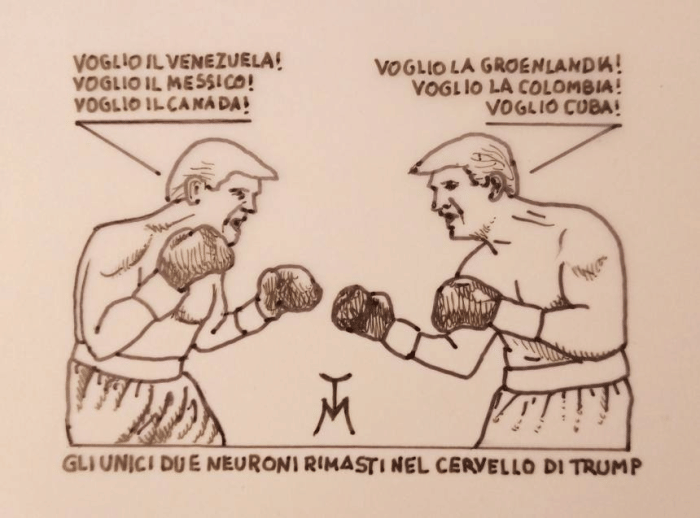 VOGLIO IL VENEZUELA!
VOGLIO IL MESSICO!
VOGLIO IL CANADA!
VOGLIO LA GROENLANDIA!
VOGLIO LA COLOMBIA!
VOGLIO CUBA!
TM
GLI UNICI DUE NEURONI RIMASTI NEL CERVELLO DI TRUMP